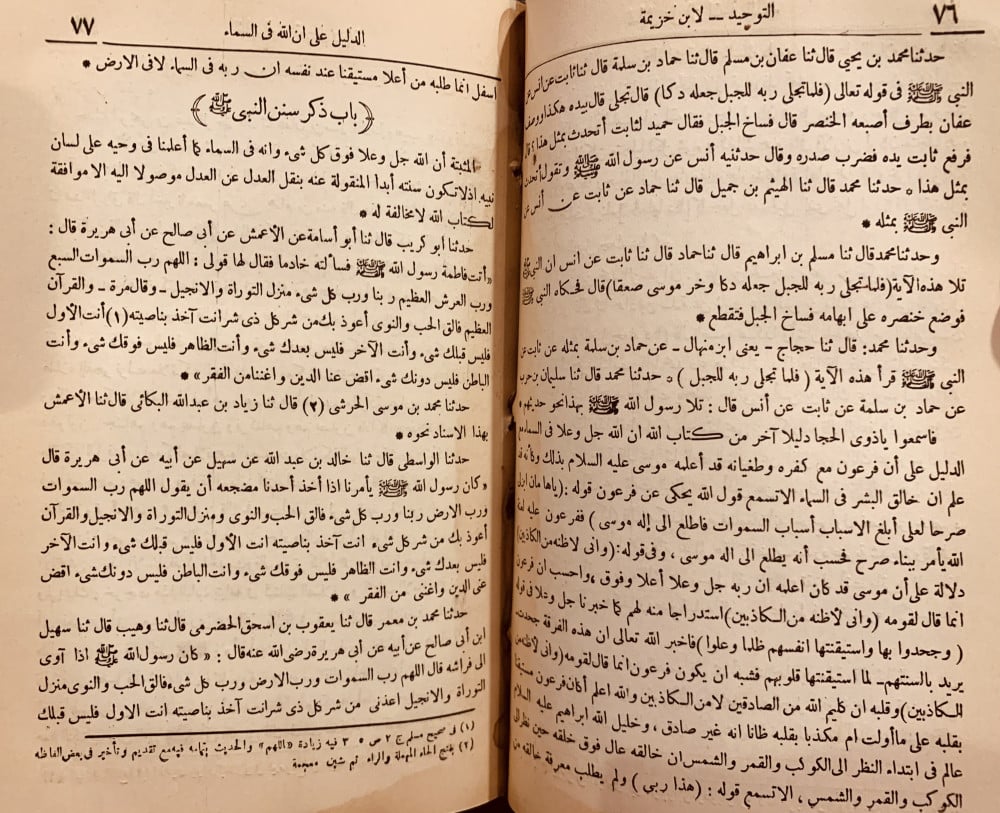 ٧٦ التوحيد -- لابن خزيمة
حدثنا محمد بن يحيى قال ثنا عفان بن مسلم قال ثنا حماد بن سلمة قال ثنا ثابت عن انس عن
النبي ﷺ فى قوله تعالى (فلما تجلى ربه للجبل جعله دكا) قال تجلى قال بيده هكذا ووصف
عفان بطرف أصبعه الخنصر قال فساخ الجبل فقال حميد لثابت أتحدث بمثل هذا؟ قال
فرفع ثابت يده فضرب صدره وقال حدثنيه أنس عن رسول الله ﷺ وتقول أتحدث
بمثل هذا * حدثنا محمد قال ثنا الهيثم بن جميل قال ثنا حماد عن ثابت عن أنس عن
النبي ﷺ بمثله *
وحدثنا محمد قال ثنا مسلم بن ابراهيم قال ثنا حماد قال ثنا ثابت عن انس ان النبي ﷺ
تلا هذه الآية (فلما تجلى ربه للجبل جعله دكا وخر موسى صعقا) قال فحكاه النبي ﷺ
فوضع خنصره على ابهامه فساخ الجبل فتقطع *
وحدثنا محمد: قال ثنا حجاج - يعنى ابن منهال - عن حماد بن سلمة بمثله عن ثابت عن
النبي ﷺ قرأ هذه الآية (فلما تجلى ربه للجبل) * حدثنا محمد قال ثنا سليمان بن حرب
عن حماد بن سلمة عن ثابت عن أنس قال : تلا رسول الله ﷺ بهذا نحو حديثهم *
فاسمعوا ياذوى الحجا دليلا آخر من كتاب الله ان الله جل وعلا فى السماء مع
الدليل على أن فرعون مع كفره وطغيانه قد أعلمه موسى عليه السلام بذلك وكأنه قد
علم ان خالق البشر فى السماء الاتسمع قول الله يحكى عن فرعون قوله : (ياهامان ابن لى
صرحا لعلى أبلغ الاسباب أسباب السموات فاطلع الى إله موسى) ففرعون عليه لعنة
الله يأمر ببناء صرح فحسب أنه يطلع الى اله موسى ، وفى قوله: (وانى لاظنه من الكاذبين)
دلالة على أن موسى قد كان اعلمه ان ربه جل وعلا أعلا وفوق ،واحسب ان فرعون
انما قال لقومه (وانى لاظنه من الكاذبين) استدراجا منه لهم كما خبرنا جل وعلا فى قوله
(وجحدوا بها واستيقنتها انفسهم ظلما وعلوا) فاخبر الله تعالى ان هذه الفرقة جحدت
يريد بالسنتهم- لما استيقنتها قلوبهم فشبه ان يكون فرعون انما قال لقومه (وانى لاظنه من
الكاذبين) وقلبه ان كليم الله من الصادقين لامن الكاذبين والله اعلم أكان فرعون مستيقنا
بقلبه على ماأولت ام مكذبا بقلبه ظانا انه غير صادق ، وخليل الله ابراهيم عليه السلام
عالم فى ابتداء النظر الى الكوكب والقمر والشمس ان خالقه عال فوق خلقه حين نظر الى
الكوكب والقمر والشمس ، الاتسمع قوله : (هذا ربى) ولم يطلب معرفة خالقه من
الدليل على ان الله فى السماء ٧٧
اسفل انما طلبه من أعلا مستيقنا عند نفسه ان ربه فى السماء لافى الارض *
﴿باب ذكر سنن النبى ﷺ﴾
المثبتة أن الله جل وعلا فوق كل شىء وانه فى السماء كما أعلمنا فى وحيه على لسان
نبيه اذ لاتكون سنته أبدا المنقولة عنه بنقل العدل عن العدل موصولا اليه الا موافقة
لكتاب الله لا مخالفة له *
حدثنا أبو كريب قال ثنا أبو أسامة عن الأعمش عن أبى صالح عن أبى هريرة قال :
«أتت فاطمة رسول الله ﷺ فسألته خادما فقال لها قولى : اللهم رب السموات السبع
ورب العرش العظيم ربنا ورب كل شىء منزل التوراة والانجيل - وقال مرة - والقرآن
العظيم فالق الحب والنوى أعوذ بك من شر كل ذى شر انت آخذ بناصيته (١) أنت الأول
فليس قبلك شىء وأنت الآخر فليس بعدك شىء وأنت الظاهر فليس فوقك شىء وأنت
الباطن فليس دونك شىء اقض عنا الدين واغننا من الفقر» *
حدثنا محمد بن موسى الحرشى (٢) قال ثنا زياد بن عبد الله البكائى قال ثنا الأعمش
بهذا الاسناد نحوه *
حدثنا الواسطى قال ثنا خالد بن عبد الله عن سهيل عن أبيه عن أبى هريرة قال
« كان رسول الله ﷺ يأمرنا اذا أخذ أحدنا مضجعه أن يقول اللهم رب السموات
ورب الارض ربنا ورب كل شىء فالق الحب والنوى ومنزل التوراة والانجيل والقرآن
أعوذ بك من شر كل شىء انت آخذ بناصيته انت الأول فليس قبلك شىء وانت الآخر
فليس بعدك شىء وانت الظاهر فليس فوقك شىء وانت الباطن فليس دونك شىء اقض
عنى الدين واغننى من الفقر » *
حدثنا محمد بن معمر قال ثنا يعقوب بن اسحق الحضرمى قال ثنا وهيب قال ثنا سهيل
ابن أبى صالح عن أبيه عن أبى هريرة رضى الله عنه قال : « كان رسول الله ﷺ اذا آوى
الى فراشه قال اللهم رب السموات ورب الارض ورب كل شىء فالق الحب والنوى منزل
التوراة والانجيل اعذنى من شر كل ذى شر انت آخذ بناصيته انت الاول فليس قبلك
(١) فى صحيح مسلم ج ٢ ص ٣ فيه زيادة «اللهم» والحديث بتمامه فيه مع تقديم وتأخير فى بعض الفاظه
(٢) بفتح الحاء المهملة والراء ثم شين معجمة